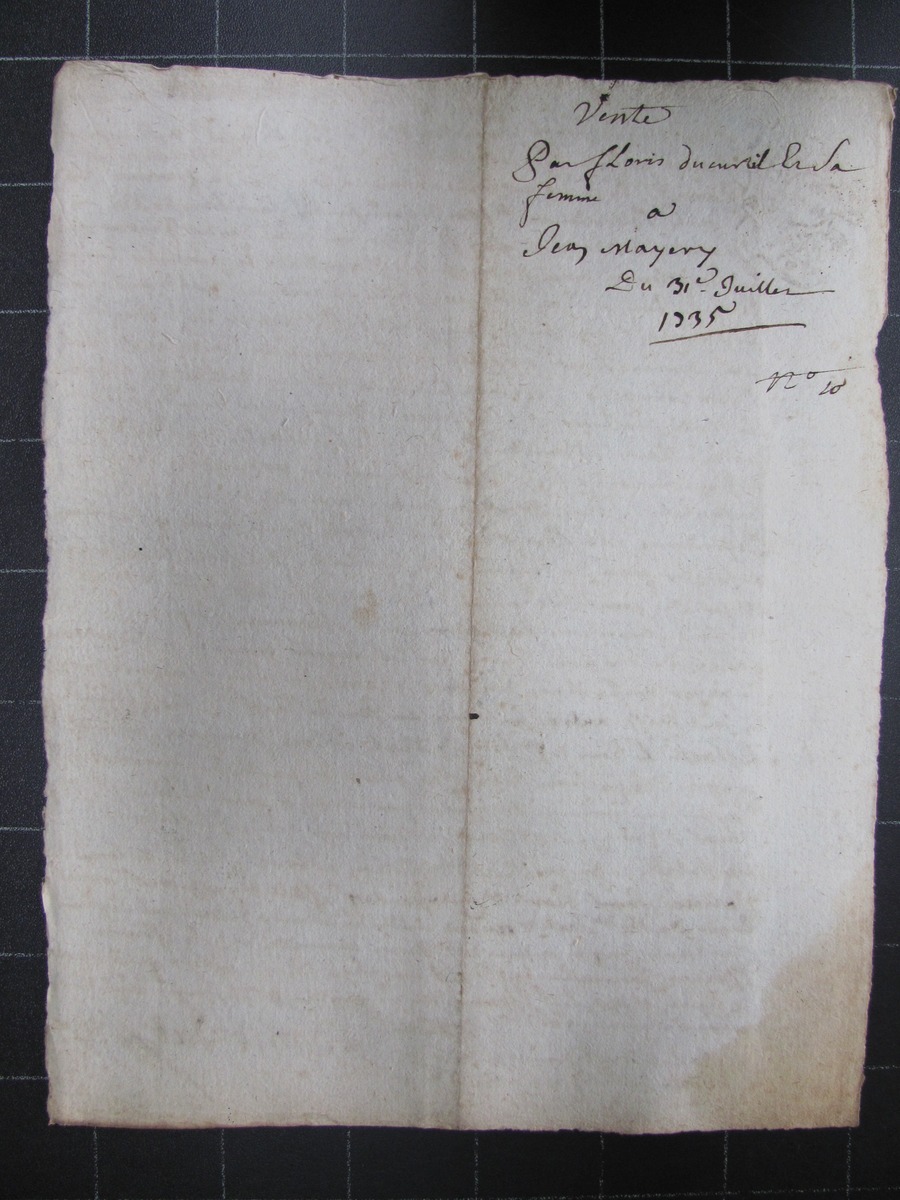 Vente
Par fLoris ducurtil Et Sa
femme
a
Jean Mayery
Du 31e. Juillet
1735
No 10